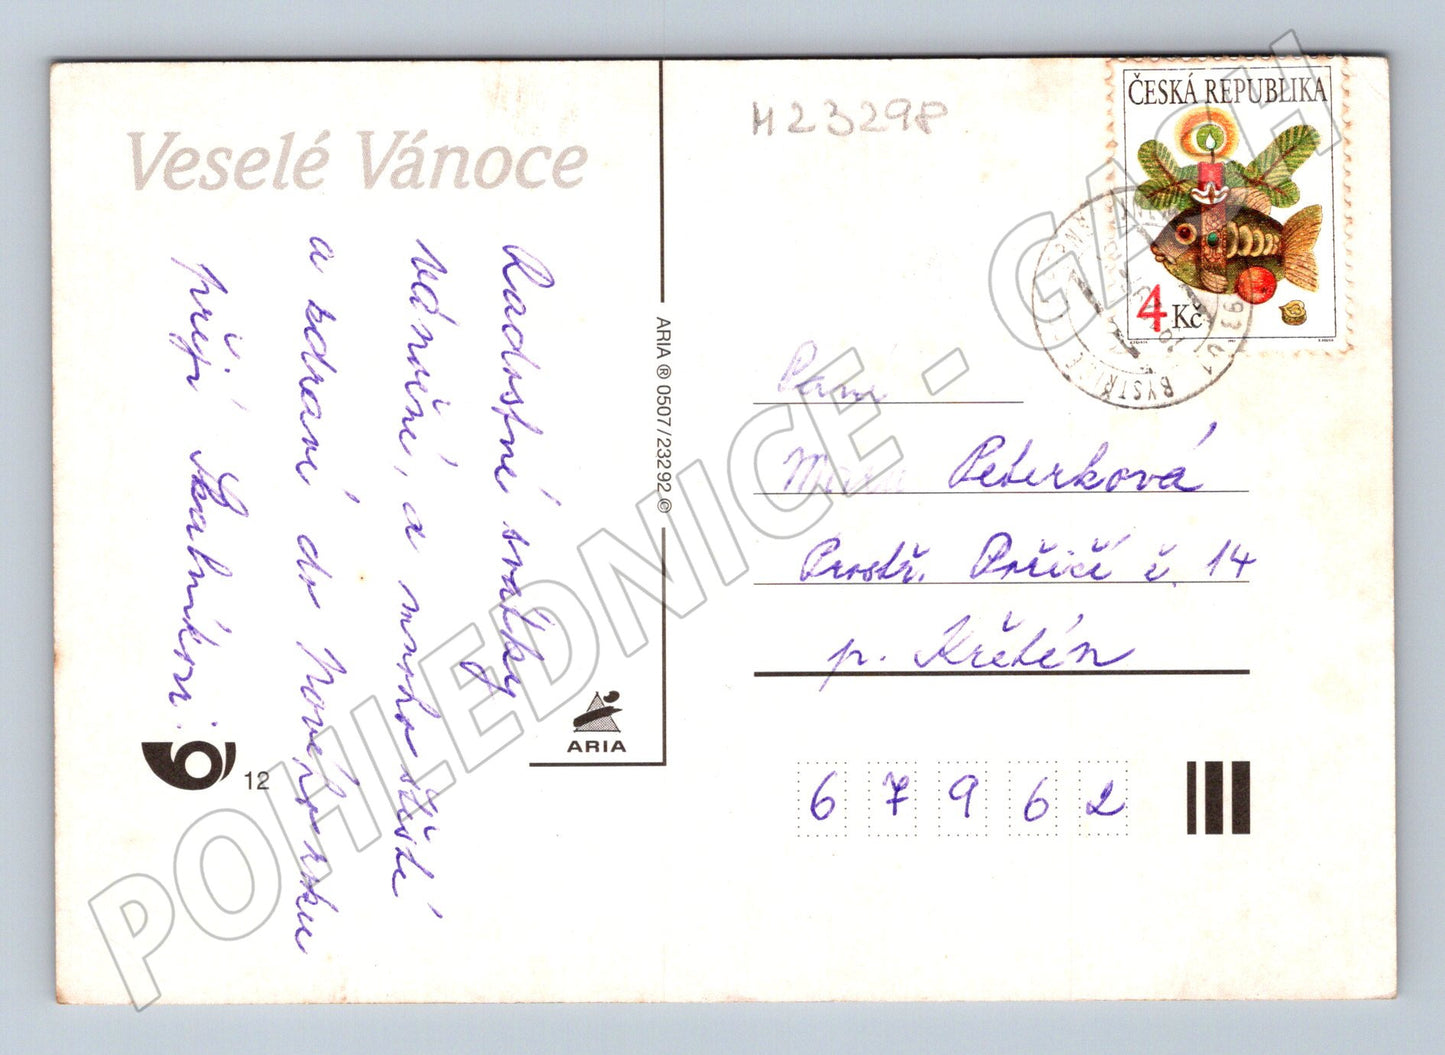 Veselé Vánoce
Radostné svátky
vánoční, a mnoho štěstí
a zdraví do Nového roku
přejí
12
ARIA ® 0507/23292 ©
ARIA
M23298
ČESKÁ REPUBLIKA
4 Kč
BYSTŘ
93 01
Paní
Marie Peterková
Prostř. Poříčí č. 14
p. Křetín
67962
POHLEDNICE - GASH